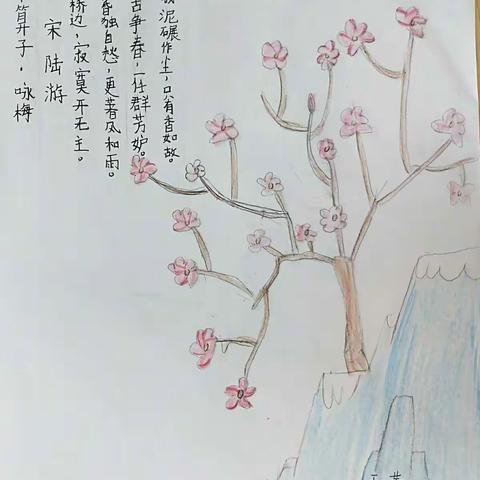 算子·咏梅
宋 陆游
桥边，寂寞开无主。
昏独自愁，更著风和雨。
争春，一任群芳妒。
泥碾作尘，只有香如故。